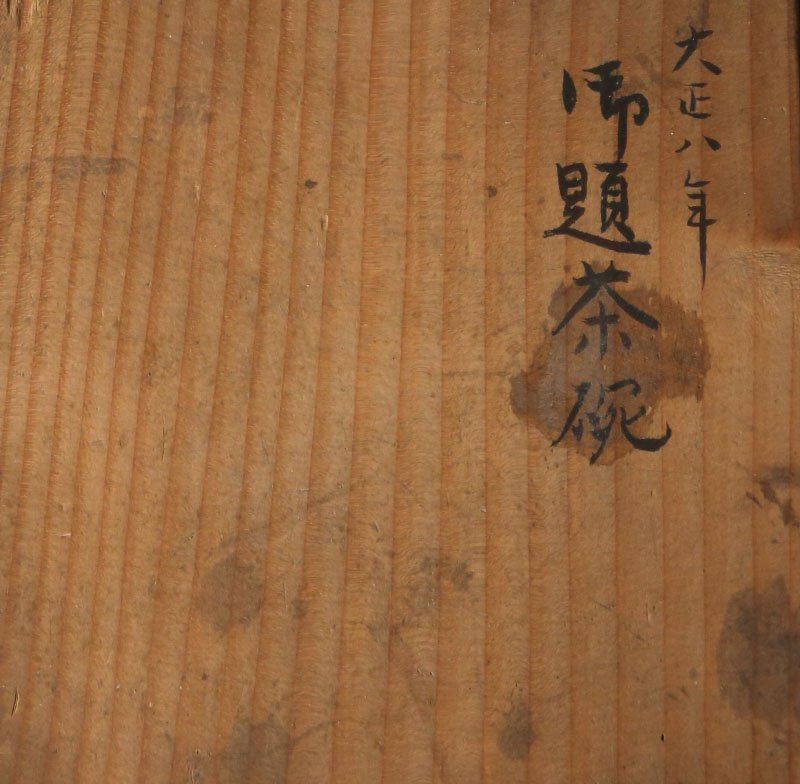 大正八年
御題茶碗